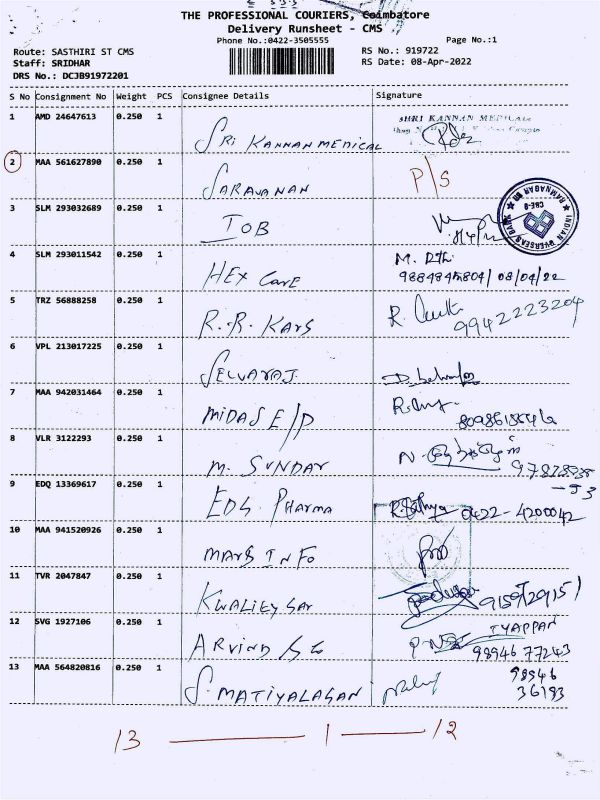 THE PROFESSIONAL COURIERS, Coimbatore
Delivery Runsheet - CMS
Phone No.:0422-3505555
Page No.:1
Route: SASTHIRI ST CMS
RS No.: 919722
Staff: SRIDHAR
RS Date: 08-Apr-2022
DRS No.: DCJB91972201
S No Consignment No Weight PCS Consignee Details Signature
1 AMD 24647613 0.250 1 SRI KANNAN MEDICAL SHRI KANNAN MEDICALS
2 MAA 561627890 0.250 1 SARAVANAN P/S
3 SLM 293032689 0.250 1 IOB INDIAN OVERSEAS BANK RAMNAGAR BR CBE-9
4 SLM 293011542 0.250 1 HEX Care M. 08/04/22
5 TRZ 56888258 0.250 1 R.R. KARS R. 9942223204
6 VPL 213017225 0.250 1 SELVARAJ
7 MAA 942031464 0.250 1 MIDAS E/P
8 VLR 3122293 0.250 1 M. SUNDAR N.
9 EDQ 13369617 0.250 1 EDS PHARMA R. Sathya 0422-4200042
10 MAA 941520926 0.250 1 MARS INFO
11 TVR 2047847 0.250 1 9159729151
12 SVG 1927106 0.250 1 ARVIND IYAPPAN
98946 77243
13 MAA 564820816 0.250 1 S. MATIYALAGAN 98946
36193
13 — 1 — 12